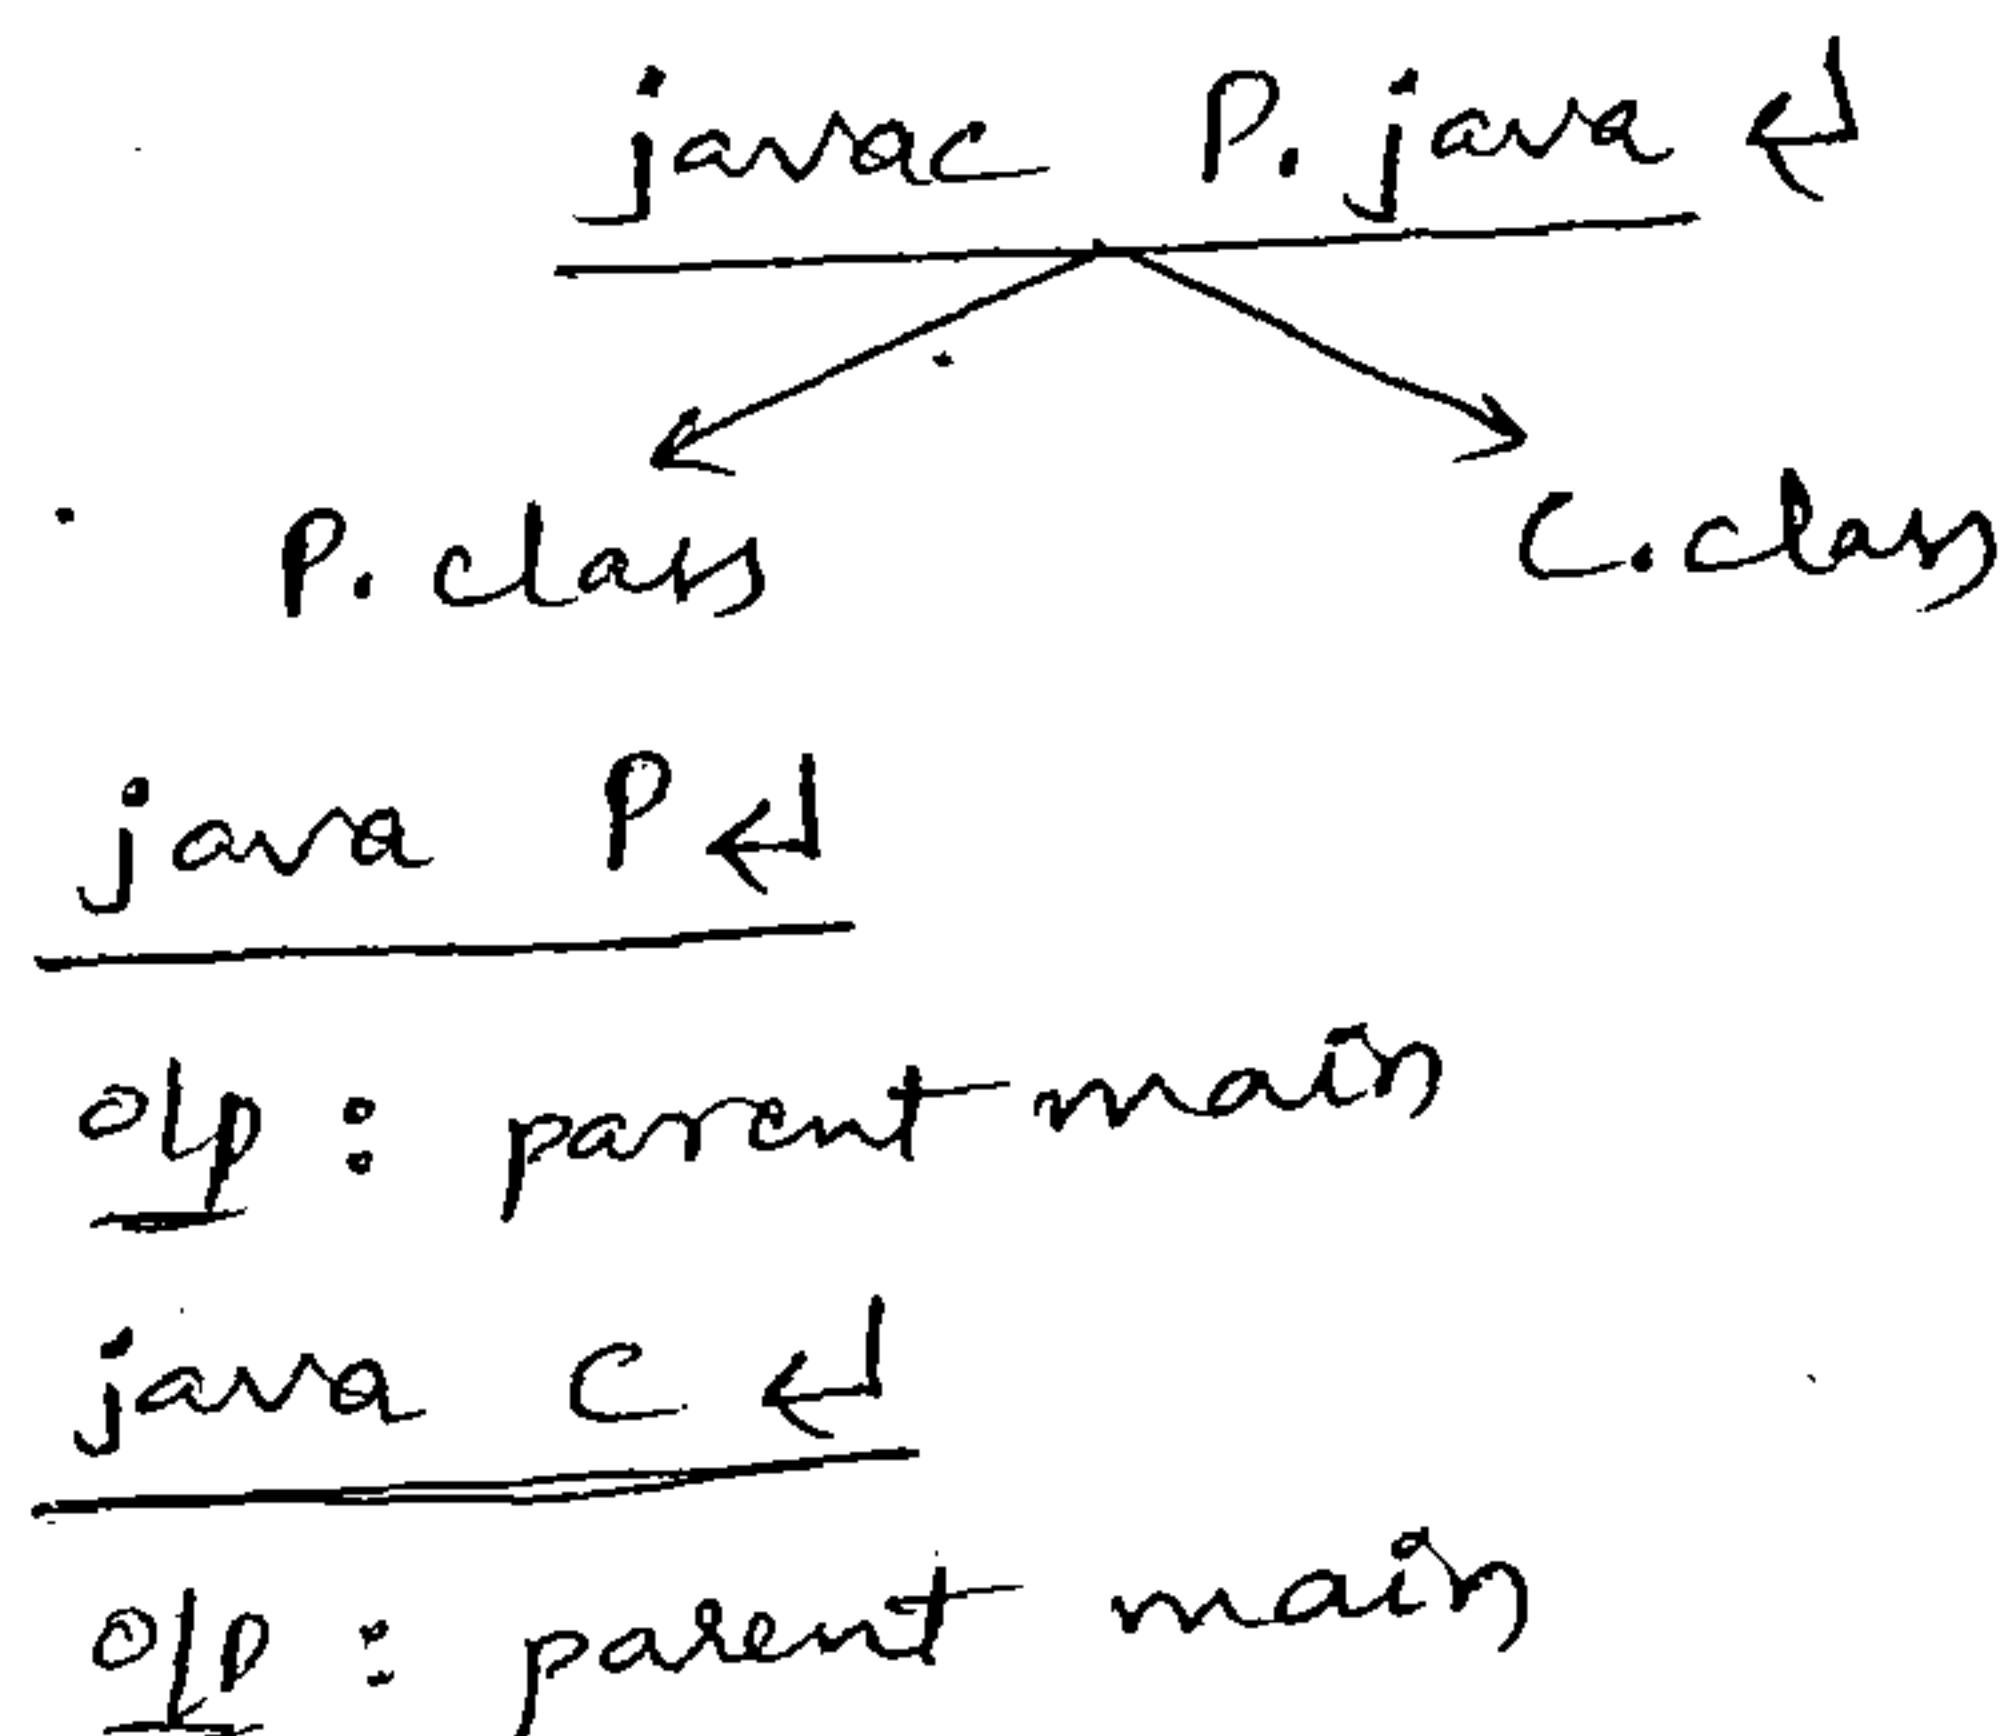 javac P.java ↵
P.class C.class
java P ↵
o/p : parent main
java C ↵
o/p : parent main